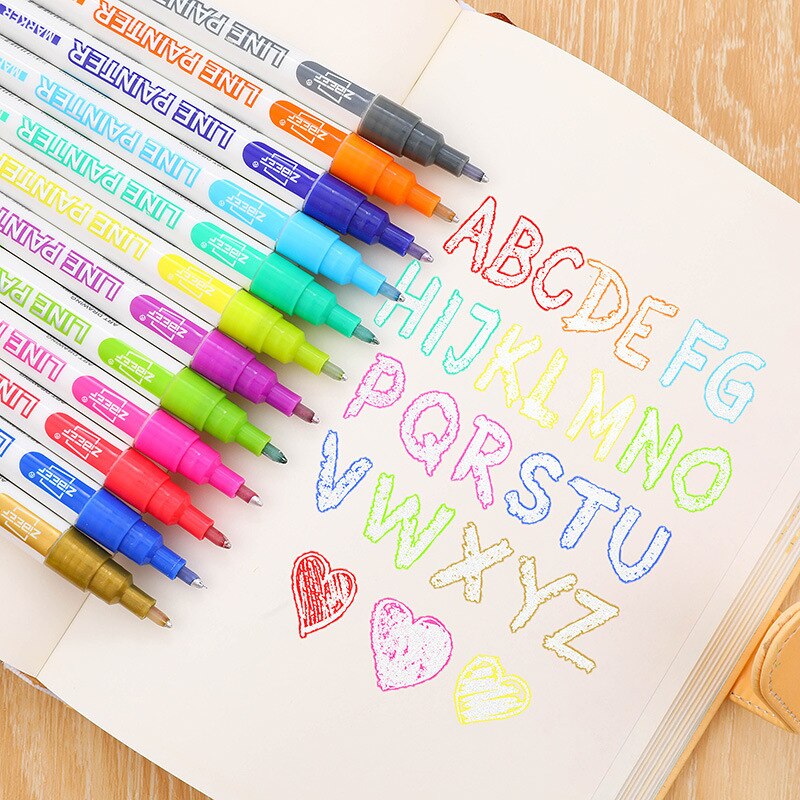 LINE PAINTER
LINE PAINTER
LINE PAINTER MARKER
LINE PAINTER
LINE PAINTER
LINE PAINTER
LINE PAINTER
LINE PA
LINE PA
LINE
LINE
L
ABCDEFG
HIJKLMNO
PQRSTU
VWXYZ